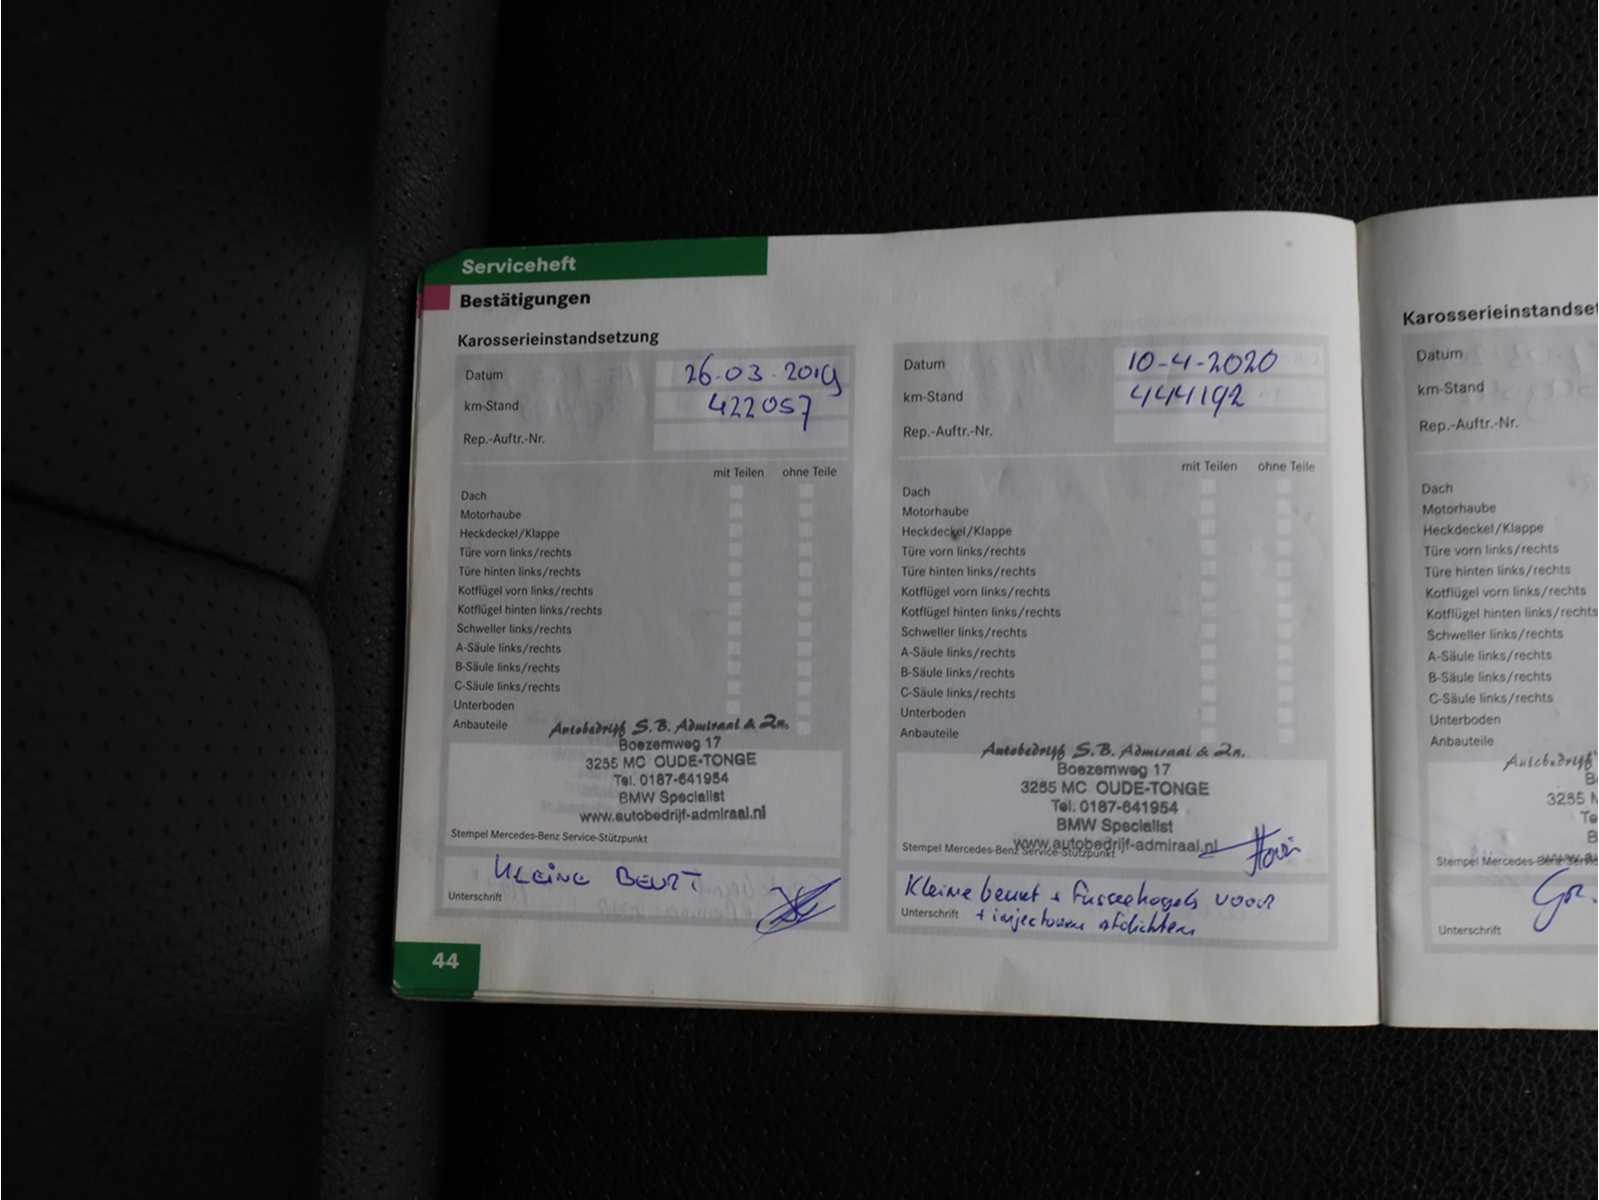 Serviceheft
Bestätigungen
Karosserieinstandsetzung
Datum 26-03-2019
km-Stand 422057
Rep.-Auftr.-Nr.
mit Teilen ohne Teile
Dach
Motorhaube
Heckdeckel/Klappe
Türe vorn links/rechts
Türe hinten links/rechts
Kotflügel vorn links/rechts
Kotflügel hinten links/rechts
Schweller links/rechts
A-Säule links/rechts
B-Säule links/rechts
C-Säule links/rechts
Unterboden
Anbauteile
Autobedrijf S.B. Admiraal & Zn.
Boezemweg 17
3255 MC OUDE-TONGE
Tel. 0187-641954
BMW Specialist
www.autobedrijf-admiraal.nl
Stempel Mercedes-Benz Service-Stützpunkt
KLEINE BEURT
Unterschrift
44
Datum 10-4-2020
km-Stand 444192
Rep.-Auftr.-Nr.
mit Teilen ohne Teile
Dach
Motorhaube
Heckdeckel/Klappe
Türe vorn links/rechts
Türe hinten links/rechts
Kotflügel vorn links/rechts
Kotflügel hinten links/rechts
Schweller links/rechts
A-Säule links/rechts
B-Säule links/rechts
C-Säule links/rechts
Unterboden
Anbauteile
Autobedrijf S.B. Admiraal & Zn.
Boezemweg 17
3255 MC OUDE-TONGE
Tel. 0187-641954
BMW Specialist
www.autobedrijf-admiraal.nl
Stempel Mercedes-Benz Service-Stützpunkt
Kleine beurt + fuseekogels voor
Unterschrift + injectoren afdichten
Karosserieinstandset
Datum
km-Stand
Rep.-Auftr.-Nr.
Dach
Motorhaube
Heckdeckel/Klappe
Türe vorn links/rechts
Türe hinten links/rechts
Kotflügel vorn links/rechts
Kotflügel hinten links/rechts
Schweller links/rechts
A-Säule links/rechts
B-Säule links/rechts
C-Säule links/rechts
Unterboden
Anbauteile
Autobedrijf
3255 M
Stempel Mercedes-Benz
Unterschrift